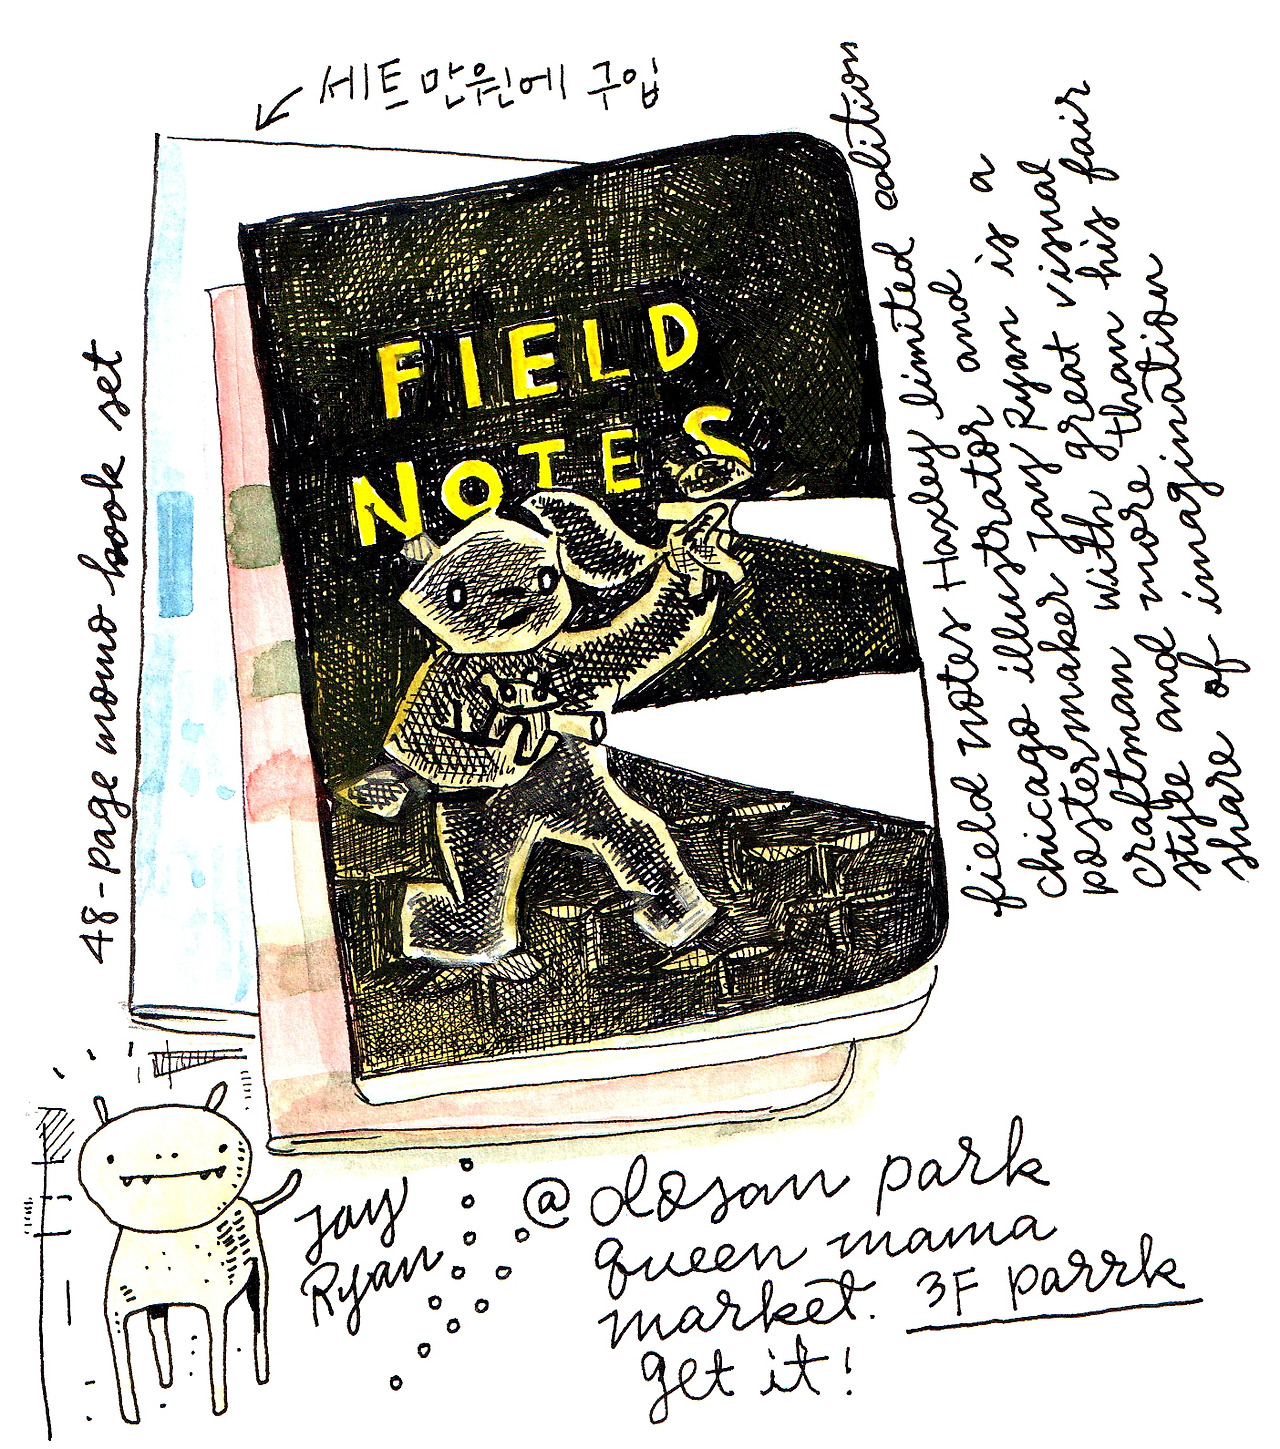 세트 만원에 구입
FIELD
NOTES
48-page momo book set
field notes Haxley limited edition
chicago illustrator and
poster maker Jay Ryan is a
craftman with great visual
style and more than his fair
share of imagination
Jay
Ryan
@ dosan park
queen mama
market. 3F parrk
get it!